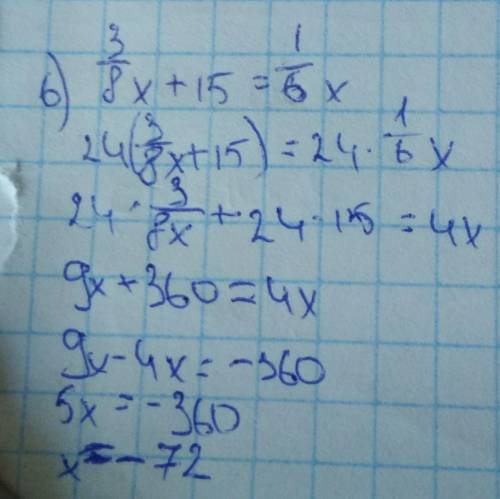 б) 3/8 x + 15 = 1/6 x
24(3/8 x + 15) = 24 · 1/6 x
24 · 3/8x + 24 · 15 = 4x
9x + 360 = 4x
9x - 4x = -360
5x = -360
x = -72